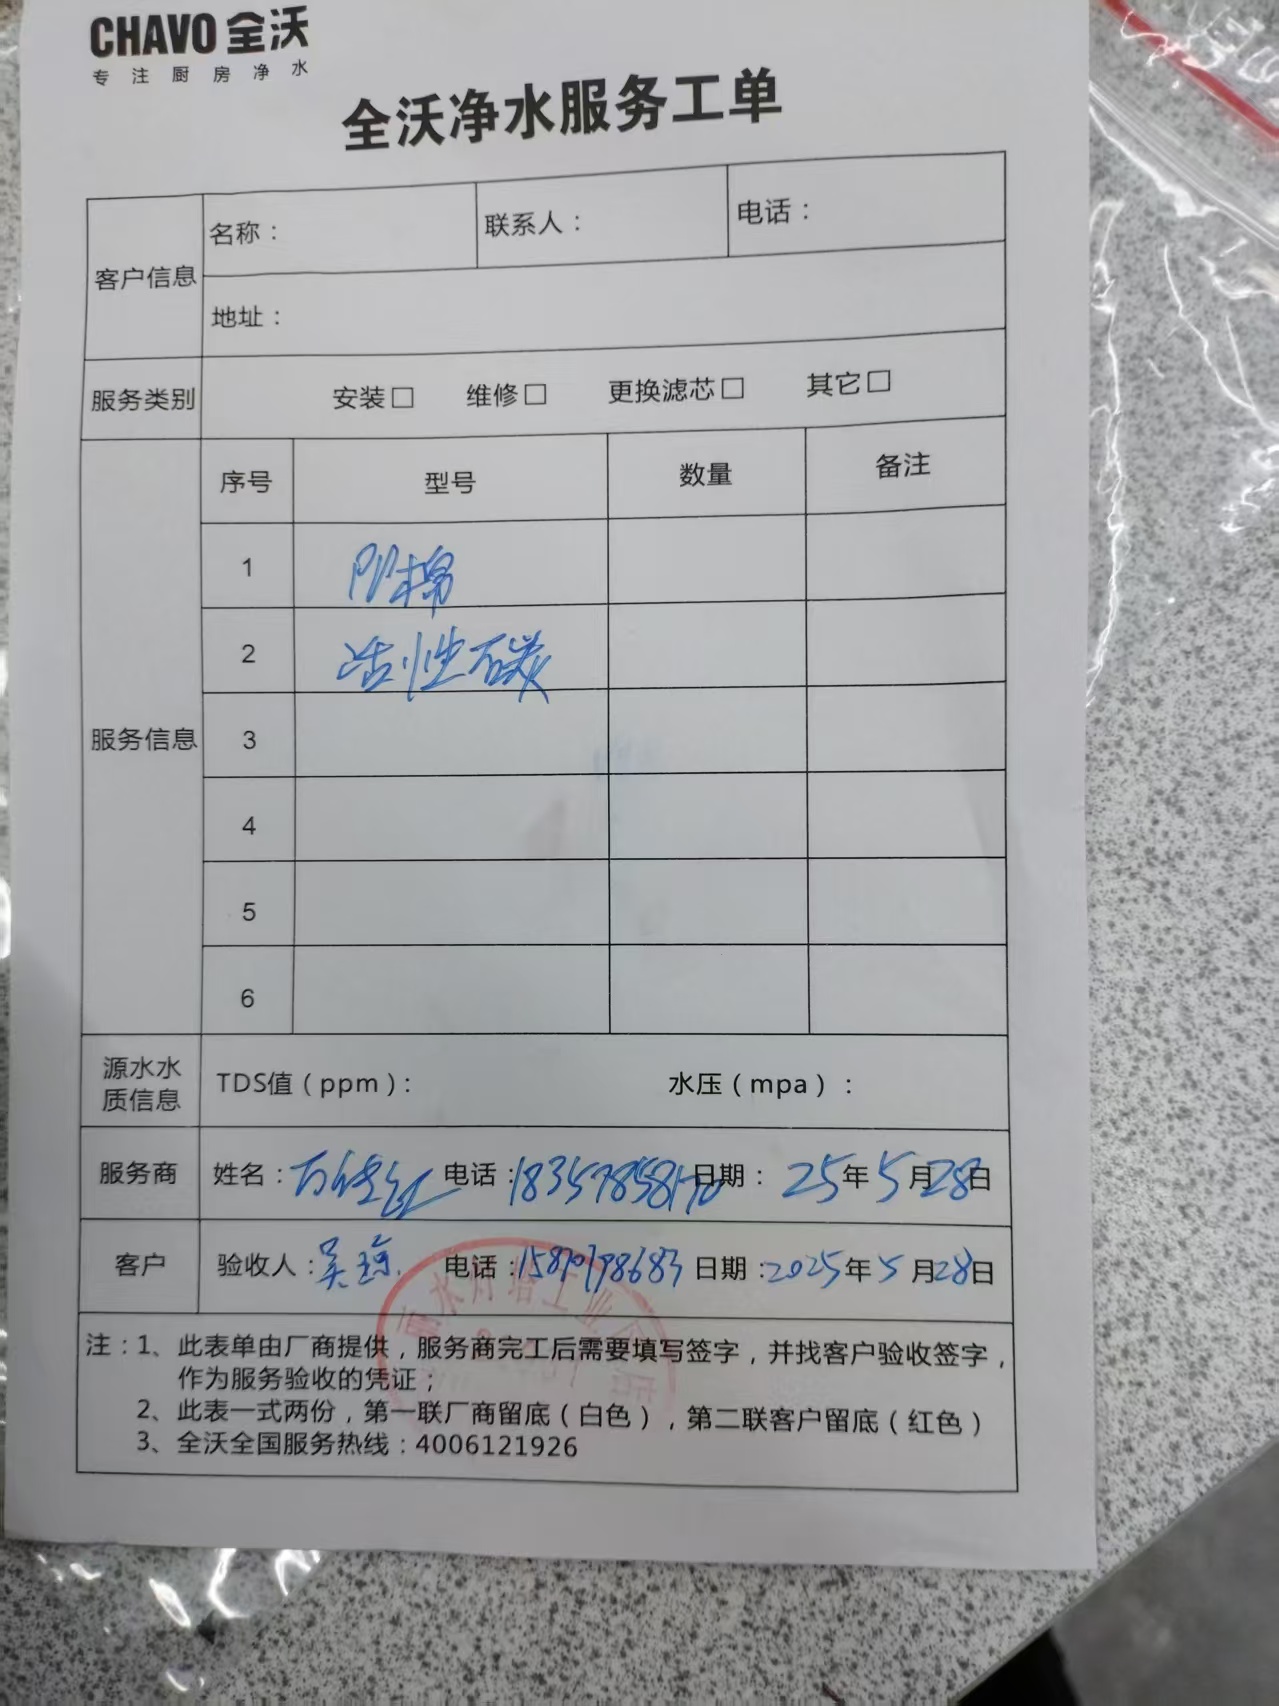 CHAVO 全沃
专注厨房净水
全沃净水服务工单
客户信息
名称：
联系人：
电话：
地址：
服务类别
安装□ 维修□ 更换滤芯□ 其它□
服务信息
序号 型号 数量 备注
1 PP棉
2 活性碳
3
4
5
6
源水水质信息
TDS值（ppm）： 水压（mpa）：
服务商 姓名： 电话： 日期：25年5月28日
客户 验收人：吴琼 电话： 日期：2025年5月28日
注：1、此表单由厂商提供，服务商完工后需要填写签字，并找客户验收签字，
作为服务验收的凭证；
2、此表一式两份，第一联厂商留底（白色），第二联客户留底（红色）
3、全沃全国服务热线：4006121926